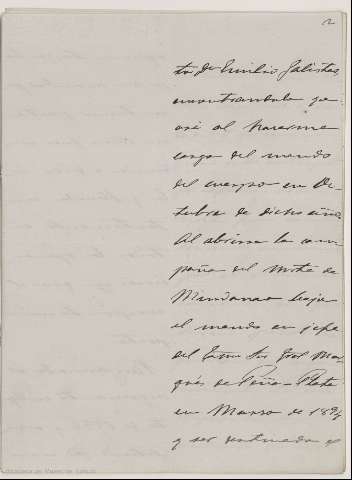 2
to de Emilio Galisteo
encontrandola ya
así al hacerme
cargo del mando
del cuerpo en Oc-
tubre de dicho año.
Al abrirse la cam-
paña del Norte de
Mindanao bajo
el mando en jefe
del Excmo Sr. Gral Mar-
qués de Peña-Plata
en Marzo de 1894
y ser destinado el